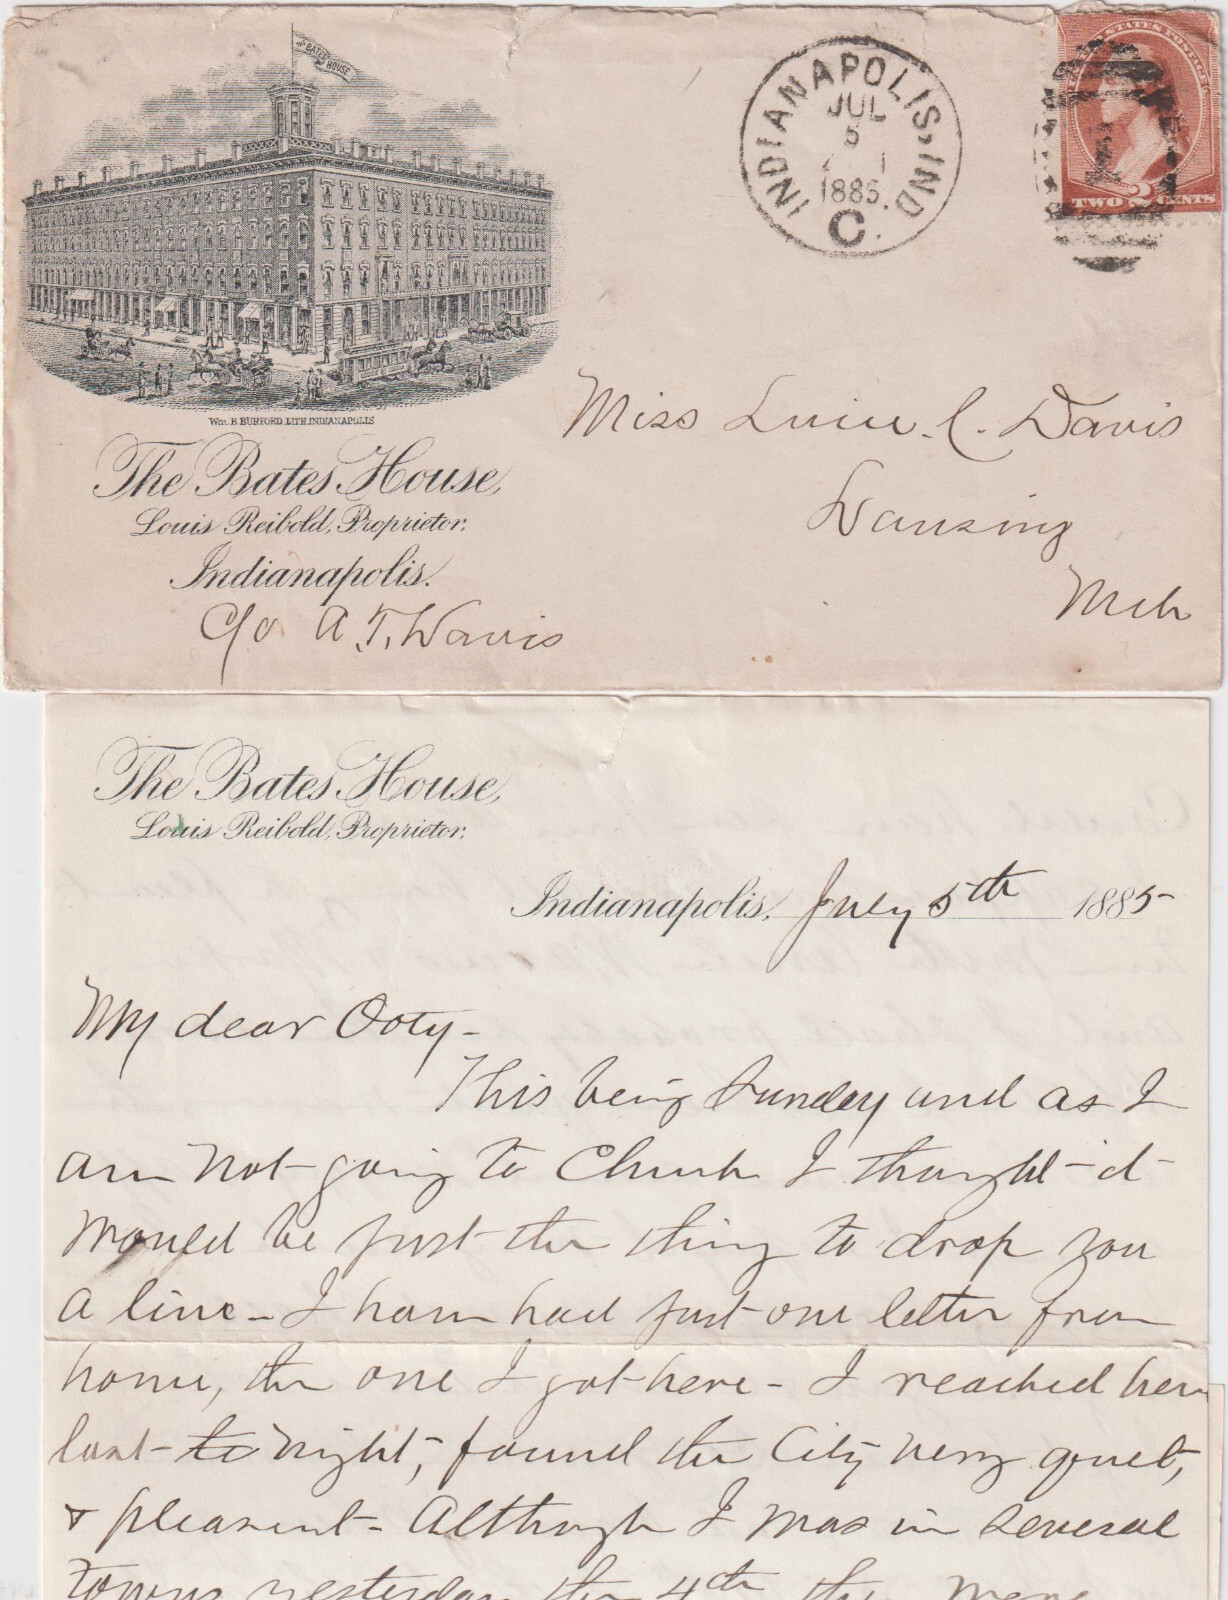 THE BATES HOUSE
INDIANAPOLIS, IND.
JUL
5
1885.
C.
UNITED STATES POSTAGE
TWO 2 CENTS
Wm. B. BURFORD. LITH. INDIANAPOLIS
The Bates House,
Louis Reibold, Proprietor.
Indianapolis.
C/o A. T. Davis
Miss C. Davis
Lansing
Mich
The Bates House,
Louis Reibold, Proprietor.
Indianapolis, July 5th 1885
My dear Ooty -
This being Sunday and as I
am not going to Church I thought it
would be just the thing to drop you
a line - I have had just one letter from
home, the one I got here - I reached here
last to night, found the City very quiet,
& pleasant - Although I was in several
towns yesterday the 4th they were